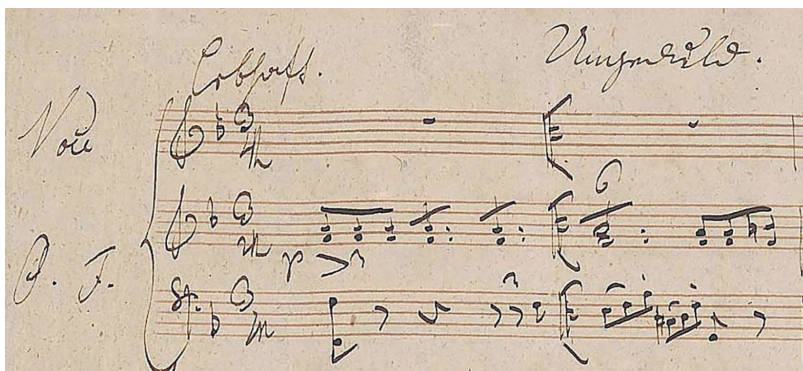 Lebhaft. Ungeduld.
Voce
P. F.